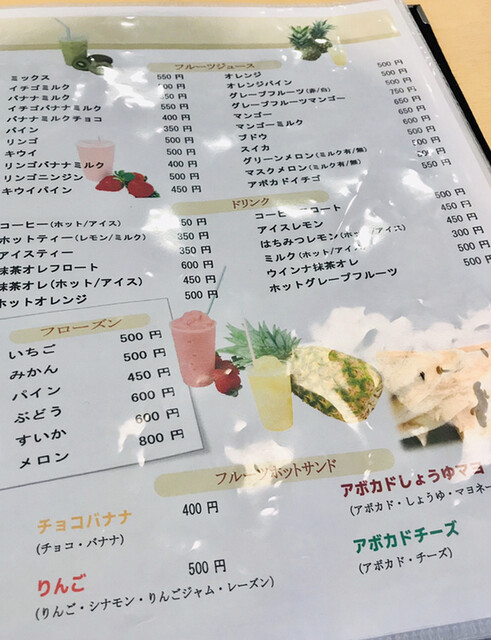 フルーツジュース
ミックス 550円
イチゴミルク
バナナミルク
イチゴバナナミルク
バナナミルクチョコ
パイン 350円
リンゴ
キウイ
リンゴバナナミルク
リンゴニンジン 500円
キウイパイン 450円
オレンジ 500円
オレンジパイン 500円
グレープフルーツ(赤/白)
グレープフルーツマンゴー 750円
マンゴー 650円
マンゴーミルク 650円
ブドウ
スイカ
グリーンメロン(ミルク有/無)
マスクメロン(ミルク有/無)
アボカドイチゴ 550円
ドリンク
コーヒー(ホット/アイス) 50円
ホットティー(レモン/ミルク) 350円
アイスティー 350円
抹茶オレフロート 600円
抹茶オレ(ホット/アイス) 450円
ホットオレンジ 500円
コーヒー コート 500円
アイスレモン 450円
はちみつレモン(ホット/アイス) 450円
ミルク(ホット/アイス) 300円
ウインナ抹茶オレ 500円
ホットグレープフルーツ 500円
フローズン
いちご 500円
みかん 500円
パイン 450円
ぶどう 600円
すいか 600円
メロン 800円
フルーツホットサンド
チョコバナナ 400円
(チョコ・バナナ)
りんご 500円
(りんご・シナモン・りんごジャム・レーズン)
アボカドしょうゆマヨ
(アボカド・しょうゆ・マヨネー
アボカドチーズ
(アボカド・チーズ)